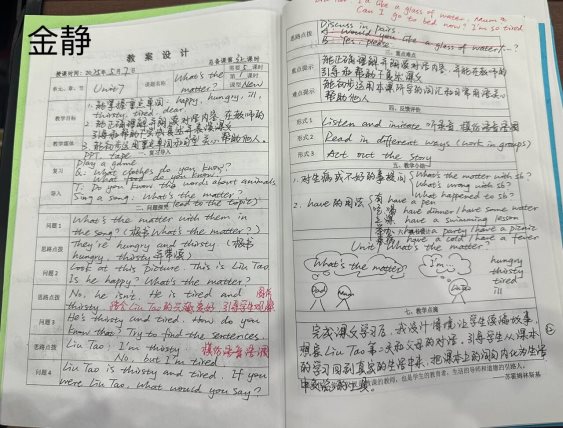 金静
教案设计
总备课第62课时
授课时间：2025年5月7日
第5课时
单元、章、节
Unit7
课题名称
What's the matter?
第1课时
课型 New
教学目标
1. 能掌握重点单词: happy, hungry, ill,
thirsty, tired, dear
2. 能正确理解并朗读对话内容, 在教师的
引导和帮助下
教学媒体
PPT, tape
一、复习导入
复习
Play a game
Q: What clothes do you know?
What food do you know?
导入
T: Do you know the words about animals
Sing a song: What's the matter?
二、问题探究 (lead to the topic)
问题1
What's the matter with them in
the song? (板书 What's the matter?)
思路点拨
They're hungry and thirsty. (板书
hungry, thirsty
问题2
Look at this picture. This is Liu Tao.
Is he happy? What's the matter?
思路点拨
No, he isn't. He is tired and
thirsty.
问题3
He's thirsty and tired. How do you
know that? Try to find the sentences.
思路点拨
Liu Tao: I'm thirsty.
No, but I'm tired.
模仿语音语调
问题4
Liu Tao is thirsty and tired. If you
were Liu Tao, What would you say?
I'd like a glass of water, Mum
Can I go to bed now? I'm so tired
思路点拨
Discuss in pairs
A: Would you like a glass of water/...?
B: Yes, please
三、重点难点
重点提示
能正确理解并朗读对话内容, 并能在教师的
引导和帮助下
难点提示
能初步运用本课所学的词汇和日常用语关心
帮助他人
四、反馈评价
形式1
Listen and imitate 听录音 模仿语音语调
形式2
Read in different ways (work in groups)
形式3
Act out the story
五、教学小结
1. 对生病或不好的事提问
What's the matter with sb?
What's wrong with sb?
What happened to sb?
2. have 的用法
有 have a pen
吃喝 have dinner / have some water
上课 have a swimming lesson
have a party / have a picnic
患病 have a cold / have a fever
Unit7 What's the matter?
What's the matter?
I'm...
Dad
Mum
Liu Tao
hungry
thirsty
tired
ill
七、教学点滴
完成课文学习后, 我设计情境让学生续编故事,
观察 Liu Tao 第二天和父母的对话, 引导学生从课本
的学习回到真实的生活中来, 把课本上的词句内化为生活
——苏霍姆林斯基